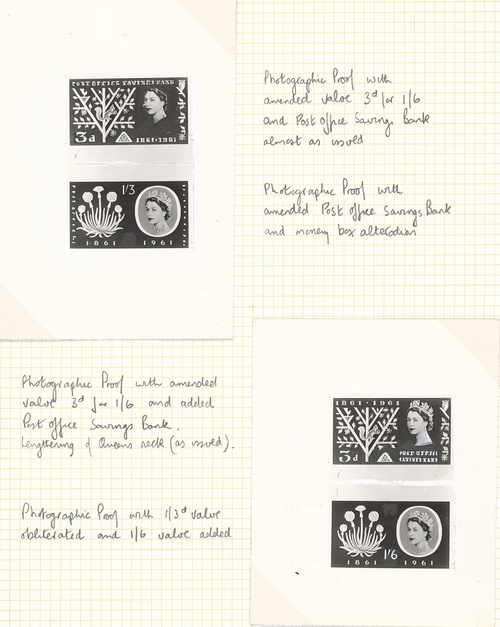 POST OFFICE SAVINGS BANK
3d
1861-1961
1/3
1861 1961
Photographic Proof with
amended value 3d for 1/6
and Post office Savings Bank
almost as issued
Photographic Proof with
amended Post office Savings Bank
and money box alteration
Photographic Proof with amended
value 3d for 1/6 and added
Post office Savings Bank.
Lengthening of Queens neck (as issued).
Photographic Proof with 1/3d value
obliterated and 1/6 value added
1861-1961
3d
POST OFFICE
SAVINGS BANK
1/6
1861 1961